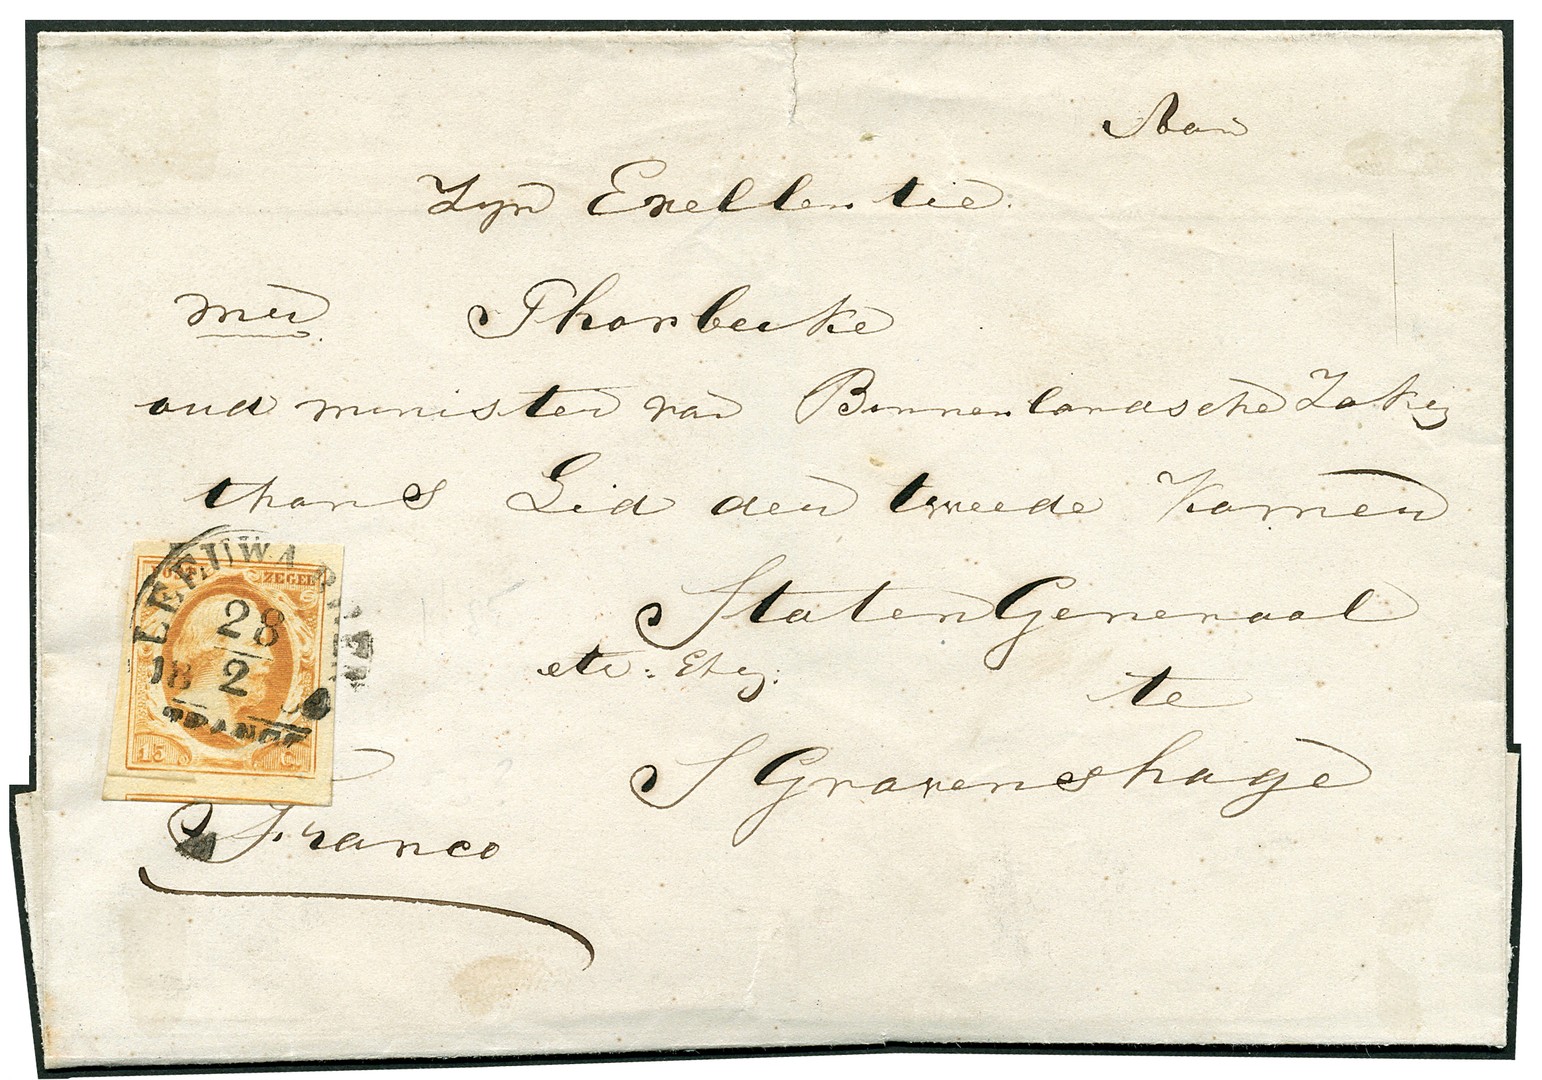 Aan
Zyn Exellentie.
mer Thorbecke
oud minister van Binnenlandsche Zaken
thans Lid der tweede Kamer
Staten Generaal
etc: Etc:
te
S Gravenshage
Franco
POST ZEGEL
15 C
LEEUWARDEN
28
2
18
FRANCO